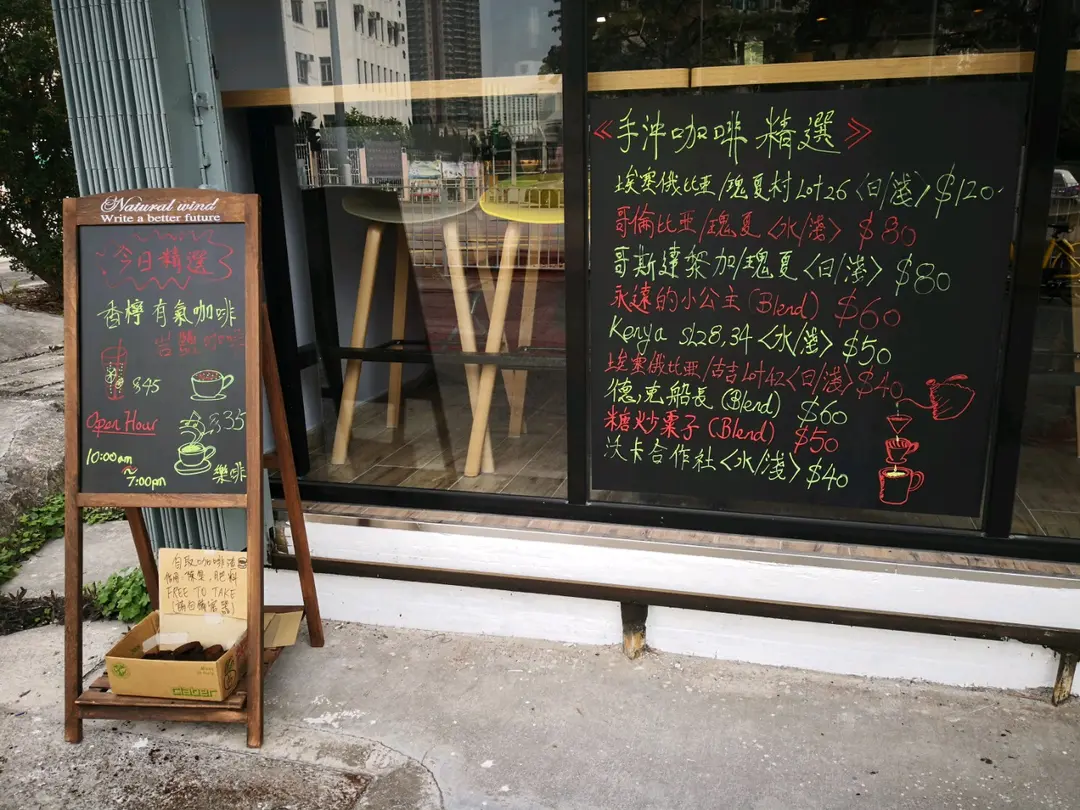 Natural wind
Write a better future
今日精選
香檸 有氣咖啡
岩鹽
$45
$35
Open Hour
10:00am
~
7:00pm
樂啡
自取咖啡渣
FREE TO TAKE
《 手沖咖啡 精選 》
埃塞俄比亞/瑰夏村 Lot 26 <日/淺> $120
哥倫比亞/瑰夏 <水/淺> $80
哥斯達黎加/瑰夏 <日/淺> $80
永遠的小公主 (Blend) $60
Kenya SL28,34 <水/淺> $50
埃塞俄比亞/古吉 Lot 42 <日/淺> $40
船長 (Blend) $60
糖炒栗子 (Blend) $50
沃卡合作社 <水/淺> $40